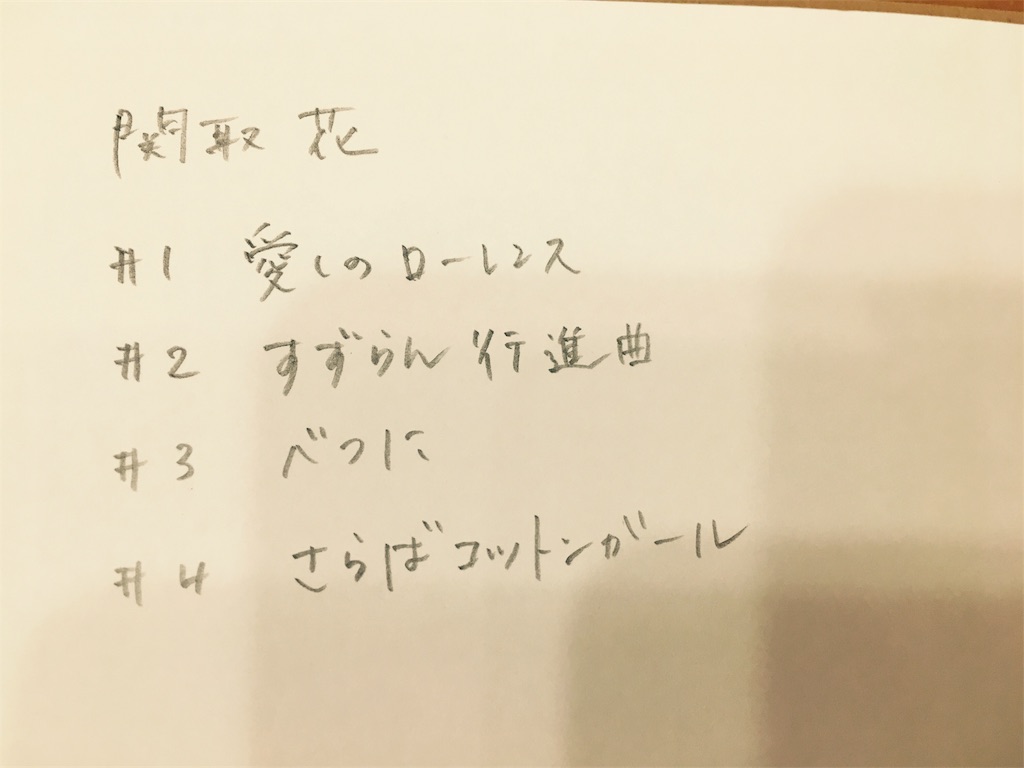 関取 花
#1 愛しのローレンス
#2 すずらん行進曲
#3 べつに
#4 さらばコットンガール